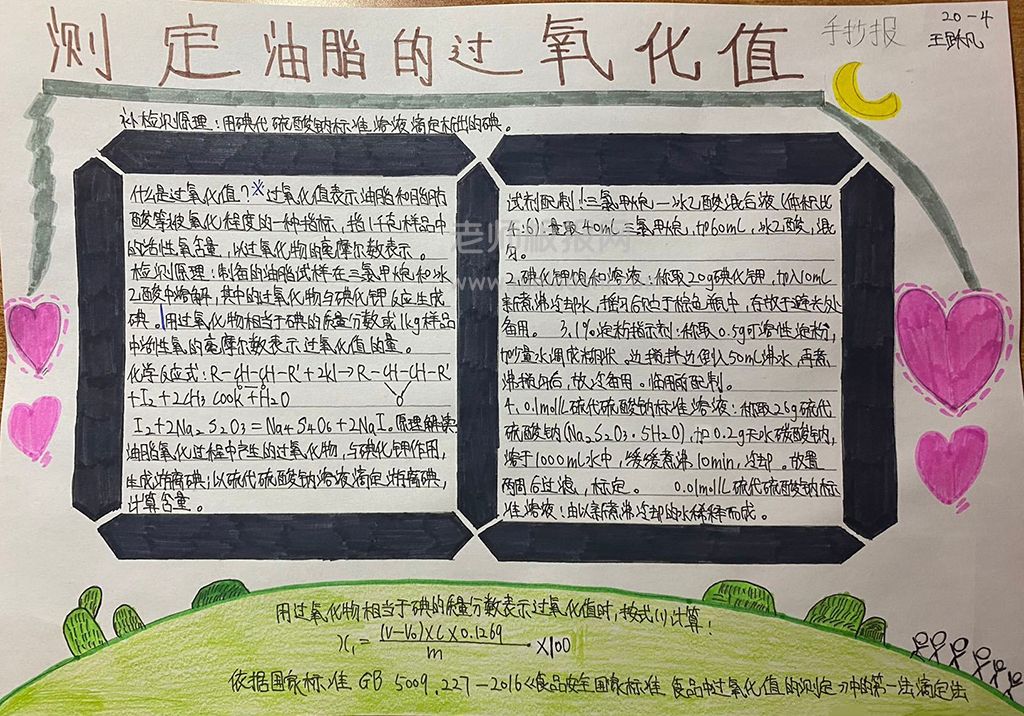 测定油脂的过氧化值
手抄报
20-4
王跃凡
补检测原理：用硫代硫酸钠标准溶液滴定析出的碘。
什么是过氧化值？※过氧化值表示油脂和脂肪
酸等被氧化程度的一种指标，指1千克样品中
的活性氧含量，以过氧化物的毫摩尔数表示。
检测原理：制备的油脂试样在三氯甲烷和冰
乙酸中溶解，其中的过氧化物与碘化钾反应生成
碘。用过氧化物相当于碘的质量分数或1kg样品
中活性氧的毫摩尔数表示过氧化值的量。
化学反应式：R-CH-CH-R'+2kI→R-CH-CH-R'
O-O
O
+I2+2CH3COOK+H2O
I2+2Na2S2O3=Na2S4O6+2NaI。原理解读
油脂氧化过程中产生的过氧化物，与碘化钾作用，
生成游离碘；以硫代硫酸钠溶液滴定游离碘，
计算含量。
试剂配制1.三氯甲烷—冰乙酸混合液（体积比
4:6）量取40mL三氯甲烷，加60mL，冰乙酸，混
匀。
2.碘化钾饱和溶液：称取20g碘化钾，加入10mL
新煮沸冷却水，摇匀后贮于棕色瓶中，存放于避光处
备用。 3.1%淀粉指示剂：称取0.5g可溶性淀粉，
加少量水调成糊状。边搅拌边倒入50mL沸水，再煮
沸搅匀后，放冷备用。临用前配制。
4、0.1mol/L硫代硫酸钠标准溶液：称取26g硫代
硫酸钠（Na2S2O3·5H2O），加0.2g无水碳酸钠，
溶于1000mL水中，缓缓煮沸10min，冷却。放置
两周后过滤，标定。 0.01mol/L硫代硫酸钠标
准溶液：由以新煮沸冷却的水稀释而成。
用过氧化物相当于碘的质量分数表示过氧化值时，按式(1)计算：
X1=(V-V0)×C×0.1269/m×100
依据国家标准 GB 5009.227-2016《食品安全国家标准 食品中过氧化值的测定》中的第一法滴定法
老师板报网